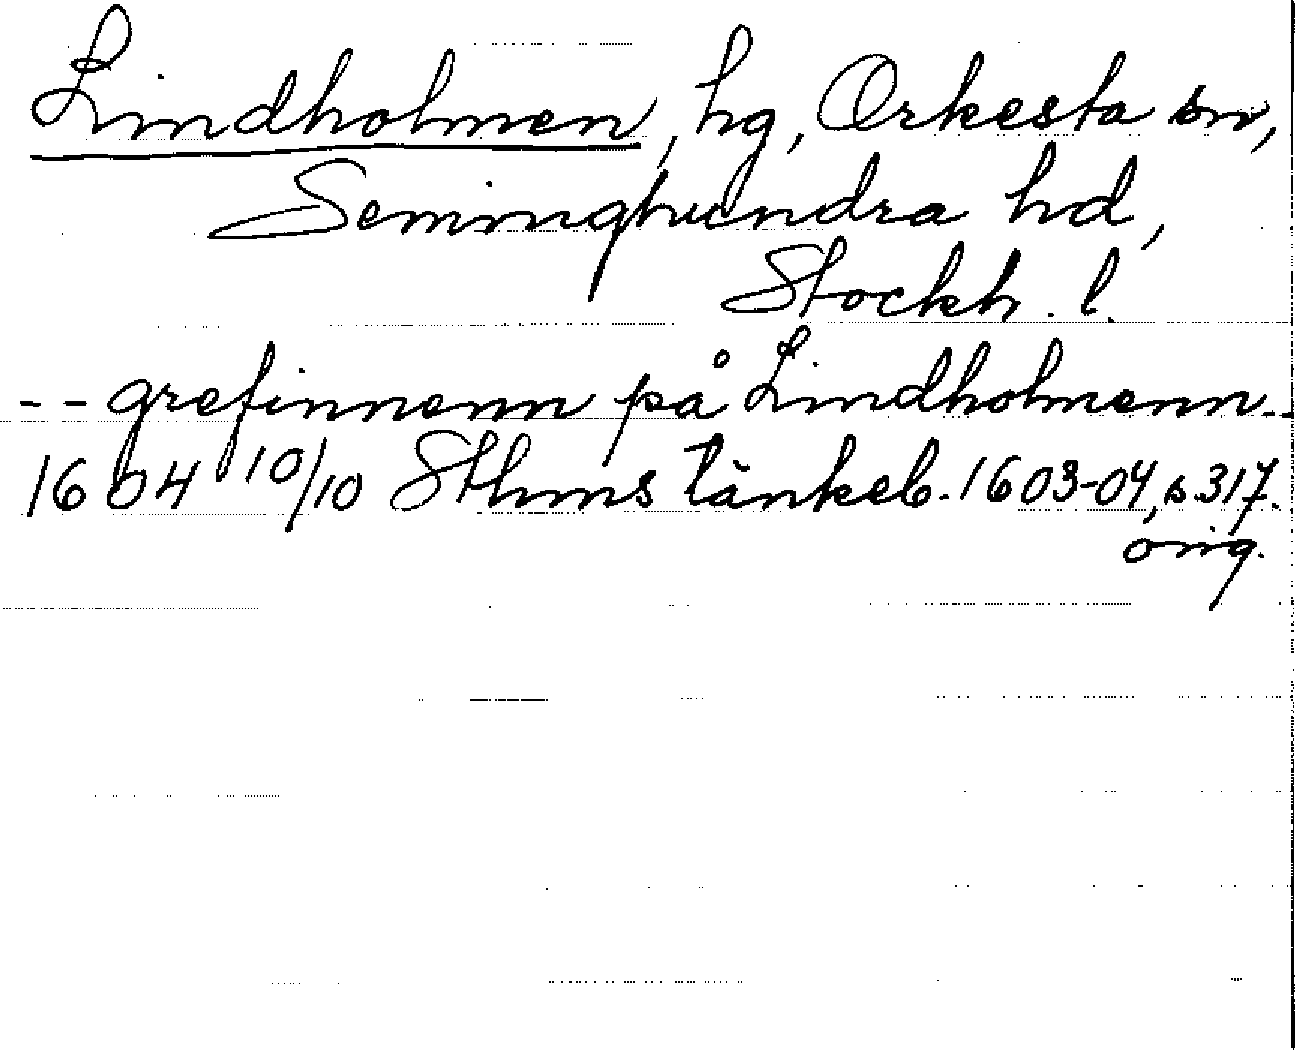 Lindholmen, hg, Orkesta sn,
Seminghundra hd,
Stockh. l.
-- grefinnenn på Lindholmenn--
1604 10/10 Sthms tänkeb. 1603-04, s. 317.
orig.